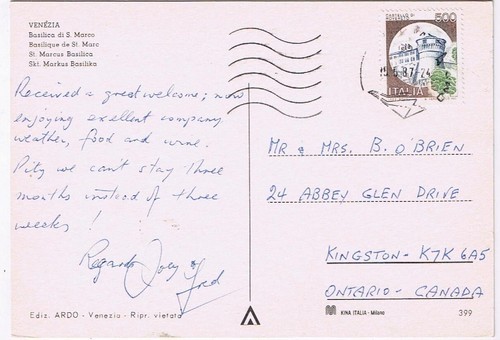 VENEZIA
Basilica di S. Marco
Basilique de St. Marc
St. Marcus Basilica
Skt. Markus Basilika
Received a great welcome; now
enjoying excellent company
weather, food and wine.
Pity we can't stay three
months instead of three
weeks !
Regards Joey &
Fred
Ediz. ARDO - Venezia - Ripr. vietata
500
ITALIA
MR & MRS. B. O'BRIEN
24 ABBEY GLEN DRIVE
KINGSTON - K7K 6A5
ONTARIO - CANADA
KINA ITALIA - Milano
399